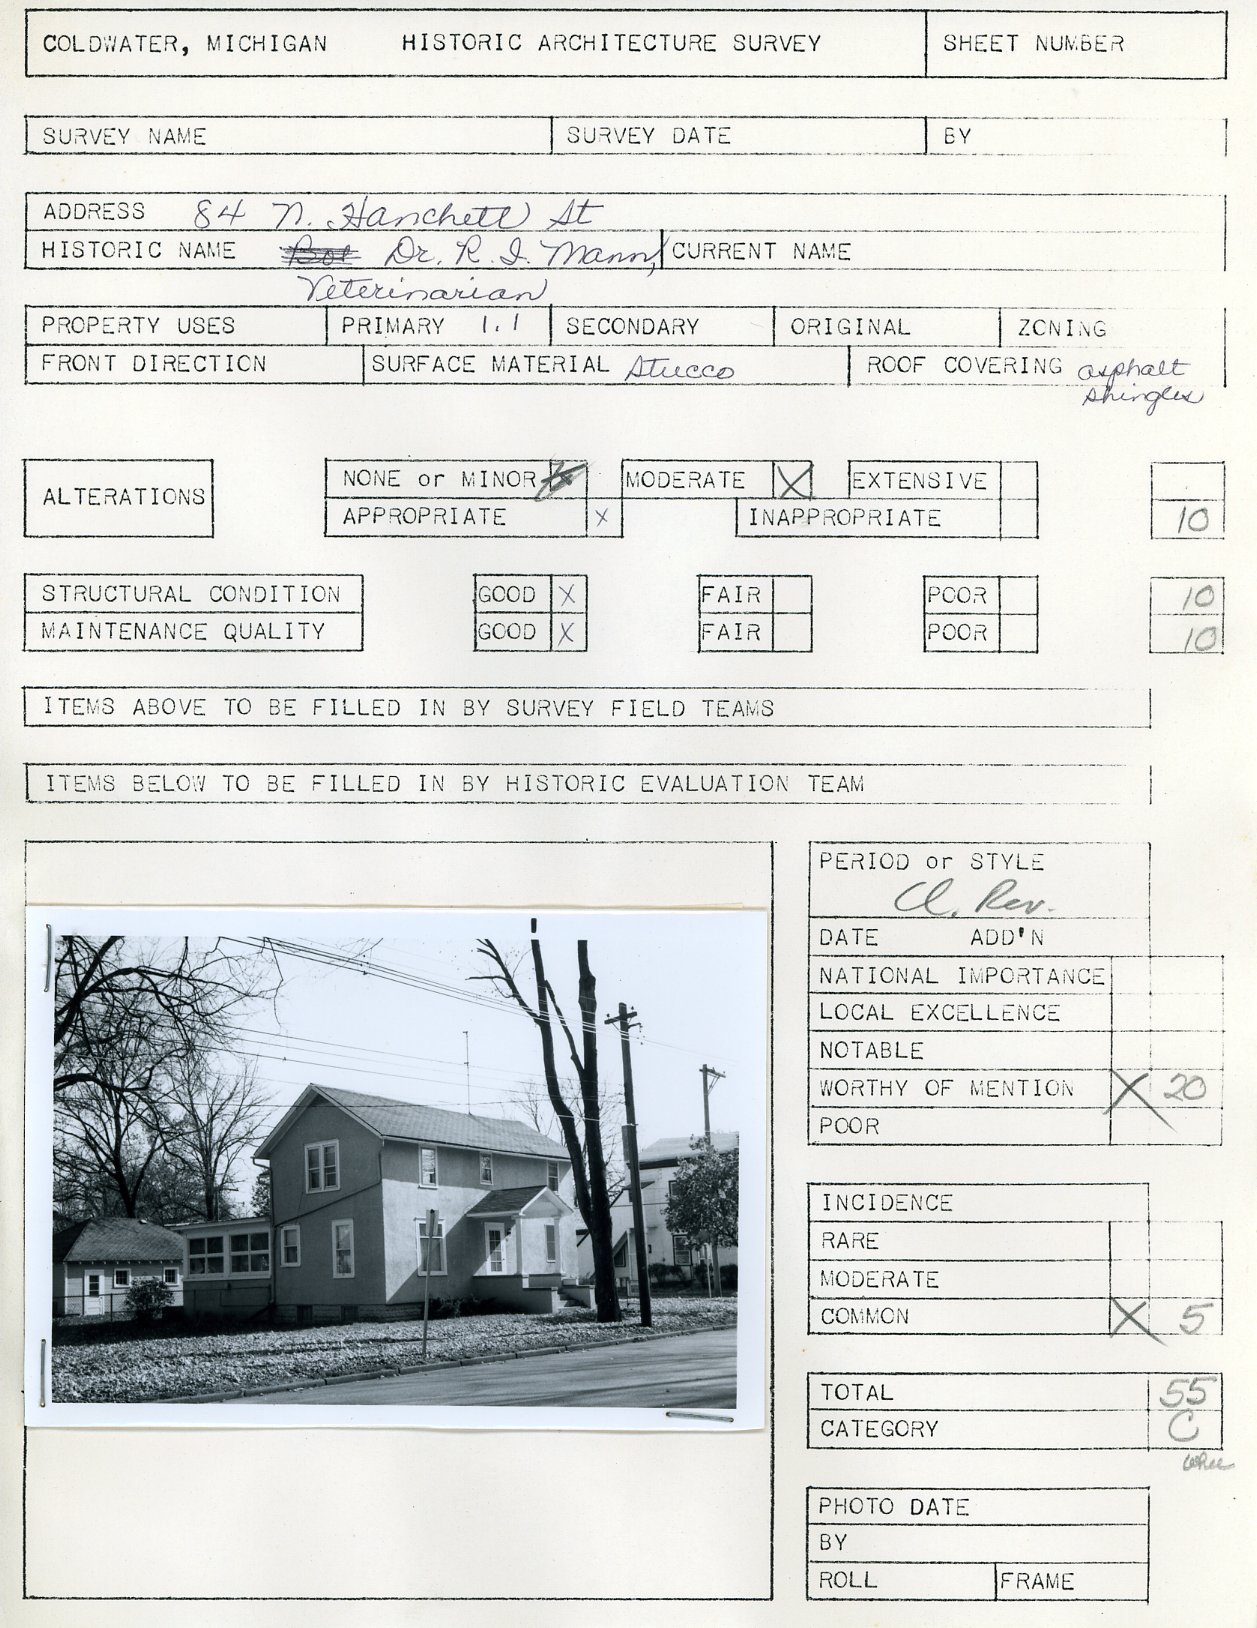 COLDWATER, MICHIGAN HISTORIC ARCHITECTURE SURVEY SHEET NUMBER
SURVEY NAME SURVEY DATE BY
ADDRESS 84 N. Hanchett St
HISTORIC NAME Dr. R. I. Mann, CURRENT NAME
Veterinarian
PROPERTY USES PRIMARY 1.1 SECONDARY ORIGINAL ZONING
FRONT DIRECTION SURFACE MATERIAL Stucco ROOF COVERING asphalt
shingles
ALTERATIONS NONE or MINOR X MODERATE X EXTENSIVE
APPROPRIATE X INAPPROPRIATE 10
STRUCTURAL CONDITION GOOD X FAIR POOR 10
MAINTENANCE QUALITY GOOD X FAIR POOR 10
ITEMS ABOVE TO BE FILLED IN BY SURVEY FIELD TEAMS
ITEMS BELOW TO BE FILLED IN BY HISTORIC EVALUATION TEAM
PERIOD or STYLE
Cl. Rev.
DATE ADD'N
NATIONAL IMPORTANCE
LOCAL EXCELLENCE
NOTABLE
WORTHY OF MENTION X 20
POOR
INCIDENCE
RARE
MODERATE
COMMON X 5
TOTAL 55
CATEGORY C
PHOTO DATE
BY
ROLL FRAME